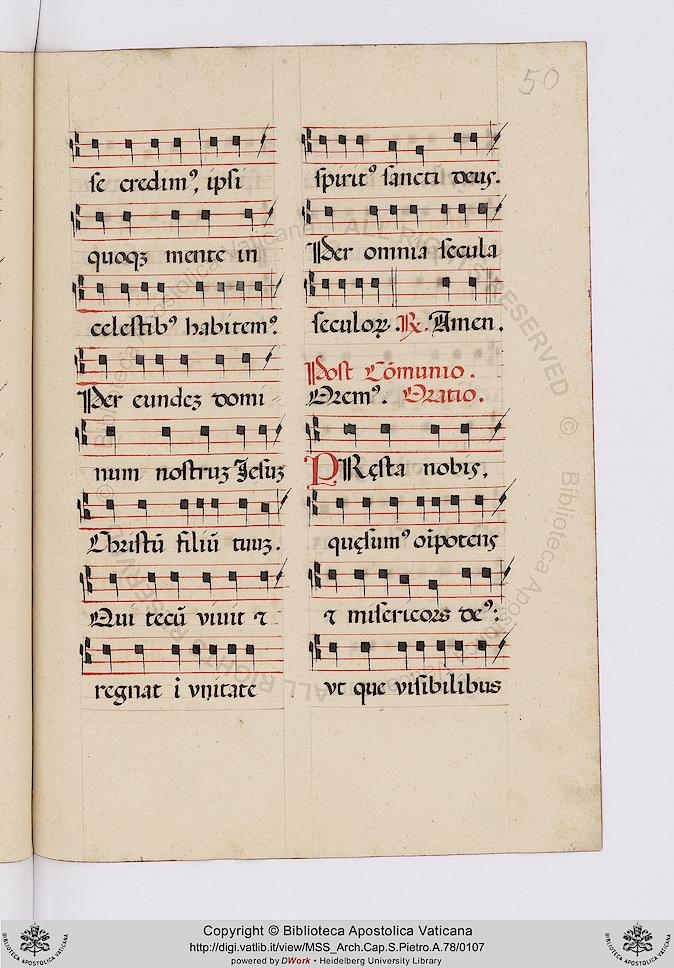 50
se credimꝰ, ipsi
quoqꝫ mente in
celestibꝰ habitemꝰ.
Per eundeꝫ domi
num nostruꝫ Jesuꝫ
Christū filiū tuuꝫ.
Qui tecū viuit ⁊
regnat ī vnitate
spiritꝰ sanctī deus.
Per omnia secula
seculoꝝ. ℞. Amen.
Post Cōmunio.
Oremꝰ. Oratio.
PRęsta nobis,
quęsumꝰ oīpotens
⁊ misericors deꝰ:
vt que visibilibus
Copyright © Biblioteca Apostolica Vaticana
http://digi.vatlib.it/view/MSS_Arch.Cap.S.Pietro.A.78/0107
powered by DWork • Heidelberg University Library
BIBLIOTECA APOSTOLICA VATICANA
BIBLIOTECA APOSTOLICA VATICANA
© Biblioteca Apostolica Vaticana ALL RIGHTS RESERVED
© Biblioteca Apostolica Vaticana ALL RIGHTS RESERVED